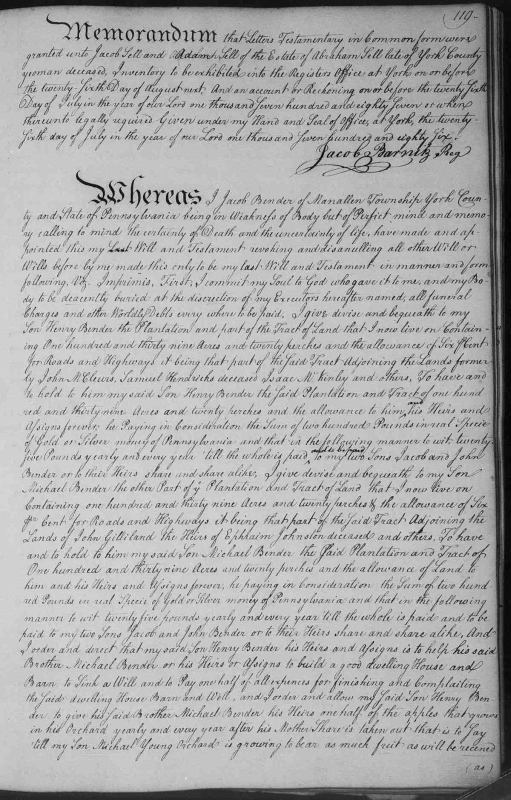 119-
Memorandum that Letters Testamentary in Common form were
granted unto Jacob Sell and Adam Sell of the Estate of Abraham Sell late of York County
yeoman deceased, Inventory to be exhibited into the Registers Office at York on or before
the twenty-sixth Day of August next And an account or Reckoning on or before the twenty Sixth
Day of July in the year of our Lord one thousand Seven hundred and eighty Seven or when
thereunto legally required Given under my Hand and Seal of Office, at York, the twenty-
sixth day of July in the year of our Lord one thousand seven hundred and eighty Six.
Jacob Barnitz Reg
Whereas I Jacob Bender of Manallen Township York Coun-
ty and State of Pennsylvania being in Weakness of Body but of Perfict mind and memo-
ry calling to mind the certainty of Death and the uncertainty of life, have made and ap-
pointed this my Last Will and Testament revoking and disanulling all other Will or
Wills before by me made this only to be my last Will and Testament in manner and form
following, Viz. Imprimis, First, I commit my Soul to God who gave it to me, and my Bo-
dy to be deacently buried at the discretion of my Executors hereafter named, all funeral
Charges and other Worldly Debts every where to be paid, I give devise and bequeath to my
Son Henry Bender the Plantation and part of the Tract of Land that I now live on Contain-
ing One hundred and thirty nine Acres and twenty perches and the allowance of Six ⅌ Cent
for Roads and Highways it being that part of the said Tract Adjoining the Lands former-
ly John Samuel Hendricks deceased Isaac McKinley and others, To have and
to hold to him my said Son Henry Bender the said Plantation and Tract of one hund
red and thirty nine Acres and twenty perches and the allowance to him, and his Heirs and
Assigns forever, he Paying in Consideration the Sum of two hundred Pounds in real Specie
of Gold or Silver money of Pennsylvania and that in the following manner to wit twenty-
five Pounds yearly and every year 'till the whole is paid, and to be paid to my two Sons Jacob and John
Bender or to their Heirs share and share alike, I give devise and bequeath to my Son
Michael Bender the other Part of ye Plantation and Tract of Land that I now live on
Containing one hundred and thirty nine Acres and twenty perches & the allowance of Six
⅌ Cent for Roads and Highways it being that part of the said Tract Adjoining the
Lands of John Gilliland the Heirs of Ephraim Johnston deceased and others, To have
and to hold to him my said Son Michael Bender the said Plantation and Tract of
One hundred and thirty nine Acres and twenty perches and the allowance of Land to
him and his Heirs and Assigns forever, he paying in Consideration the Sum of two hund
red Pounds in real Specie of Gold or Silver money of Pennsylvania and that in the following
manner to wit twenty five pounds yearly and every year till the whole is paid and to be
paid to my two Sons Jacob and John Bender or to their Heirs share and share alike, And
I order and direct that my said Son Henry Bender his Heirs and Assigns is to help his said
Brother Michael Bender or his Heirs or Assigns to build a good dwelling House and
Barn to Sink a Will and to Pay one half of all expences for finishing and Complaiting
the said dwelling House Barn and Well, and I order and allow my said Son Henry Ben-
der to give his said Brother Michael Bender his Heirs one half of the apples that grows
in his Orchard yearly and every year after his Mother Share is taken out that is to Say
'till my Son Michael Young Orchard is growing to bear as much fruit as will be recened
(as)